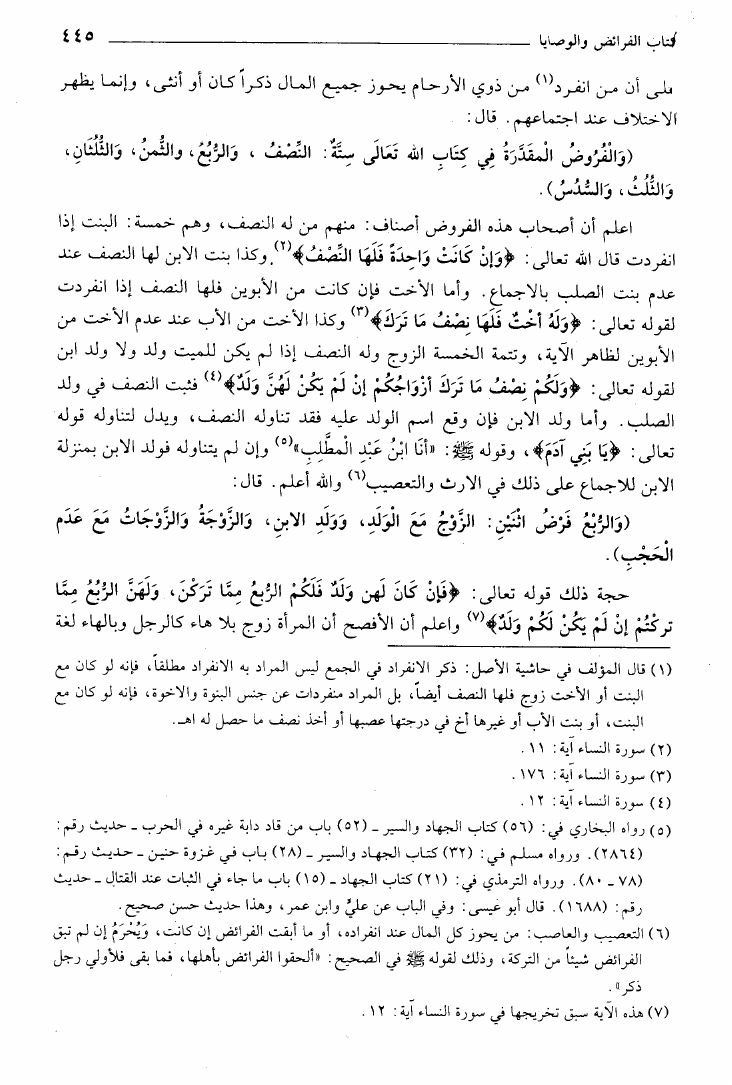 كتاب الفرائض والوصايا ٤٤٥
على أن من انفرد(١) من ذوي الأرحام يحوز جميع المال ذكراً كان أو أنثى، وإنما يظهر
الاختلاف عند اجتماعهم. قال:
(وَالْفُرُوضُ الْمقَدَّرَةُ فِي كِتَابِ الله تَعَالَى سِتَّةٌ: النِّصْفُ ، وَالرُّبُعُ، والثُّمنُ، وَالثُّلُثَانِ،
وَالثُّلُثُ، وَالسُّدُسُ).
اعلم أن أصحاب هذه الفروض أصناف: منهم من له النصف، وهم خمسة: البنت إذا
انفردت قال الله تعالى: ﴿وَإنْ كَانَتْ وَاحِدَةً فَلَهَا النِّصْفُ﴾(٢). وكذا بنت الابن لها النصف عند
عدم بنت الصلب بالاجماع. وأما الأخت فإن كانت من الأبوين فلها النصف إذا انفردت
لقوله تعالى: ﴿وَلَهُ أُخْتٌ فَلَهَا نِصْفُ مَا تَرَكَ﴾(٣) وكذا الأخت من الأب عند عدم الأخت من
الأبوين لظاهر الآية، وتتمة الخمسة الزوج وله النصف إذا لم يكن للميت ولد ولا ولد ابن
لقوله تعالى: ﴿وَلَكُمْ نِصْفُ مَا تَرَكَ أزْوَاجُكُمْ إنْ لَمْ يَكُنْ لَهُنَّ وَلَدٌ﴾(٤) فثبت النصف في ولد
الصلب. وأما ولد الابن فإن وقع اسم الولد عليه فقد تناوله النصف، ويدل لتناوله قوله
تعالى: ﴿يَا بَنِي آدَمَ﴾، وقوله ﷺ: «أنَا ابْنُ عَبْدِ الْمطَّلِبِ»(٥) وإن لم يتناوله فولد الابن بمنزلة
الابن للاجماع على ذلك في الارث والتعصيب(٦) والله أعلم. قال:
(وَالرُّبُعُ فَرْضُ اثْنَيْنِ: الزَّوْجُ مَعَ الْوَلَدِ، وَوَلَدِ الابنِ، وَالزَّوْجَةُ وَالزَّوْجَاتُ مَعَ عَدَمِ
الْحَجْبِ).
حجة ذلك قوله تعالى: ﴿فَإنْ كَانَ لَهن وَلَدٌ فَلَكُمْ الرُّبعُ مِمَّا تَرَكْنَ، وَلَهُنَّ الرُّبُعُ مِمَّا
تركتُمْ إنْ لَمْ يَكُنْ لَكُمْ وَلَدٌ﴾(٧) واعلم أن الأفصح أن المرأة زوج بلا هاء كالرجل وبالهاء لغة
(١) قال المؤلف في حاشية الأصل: ذكر الانفراد في الجمع ليس المراد به الانفراد مطلقاً، فإنه لو كان مع
البنت أو الأخت زوج فلها النصف أيضاً، بل المراد منفردات عن جنس البنوة والاخوة، فإنه لو كان مع
البنت، أو بنت الأب أو غيرها أخ في درجتها عصبها أو أخذ نصف ما حصل له اهـ.
(٢) سورة النساء آية: ١١ .
(٣) سورة النساء آية: ١٧٦ .
(٤) سورة النساء آية: ١٢ .
(٥) رواه البخاري في: (٥٦) كتاب الجهاد والسير ـ (٥٢) باب من قاد دابة غيره في الحرب ـ حديث رقم:
(٢٨٦٤). ورواه مسلم في: (٣٢) كتاب الجهاد والسير ـ (٢٨) باب في غزوة حنين ـ حديث رقم:
(٧٨ ـ ٨٠). ورواه الترمذي في: (٢١) كتاب الجهاد ـ (١٥) باب ما جاء في الثبات عند القتال ـ حديث
رقم: (١٦٨٨). قال أبو عيسى: وفي الباب عن عليٍّ وابن عمر، وهذا حديث حسن صحيح.
(٦) التعصيب والعاصب: من يحوز كل المال عند انفراده، أو ما أبقت الفرائض إن كانت، وَيُحْرَمُ إن لم تبق
الفرائض شيئاً من التركة، وذلك لقوله ﷺ في الصحيح: «ألحقوا الفرائض بأهلها، فما بقى فلأولي رجل
ذكر».
(٧) هذه الآية سبق تخريجها في سورة النساء آية: ١٢ .